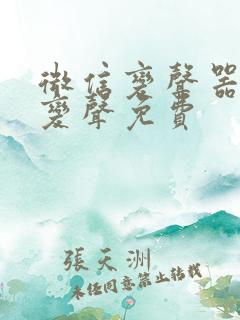 微信变聲器
变聲免費
張天洲
未任同意禁止转载